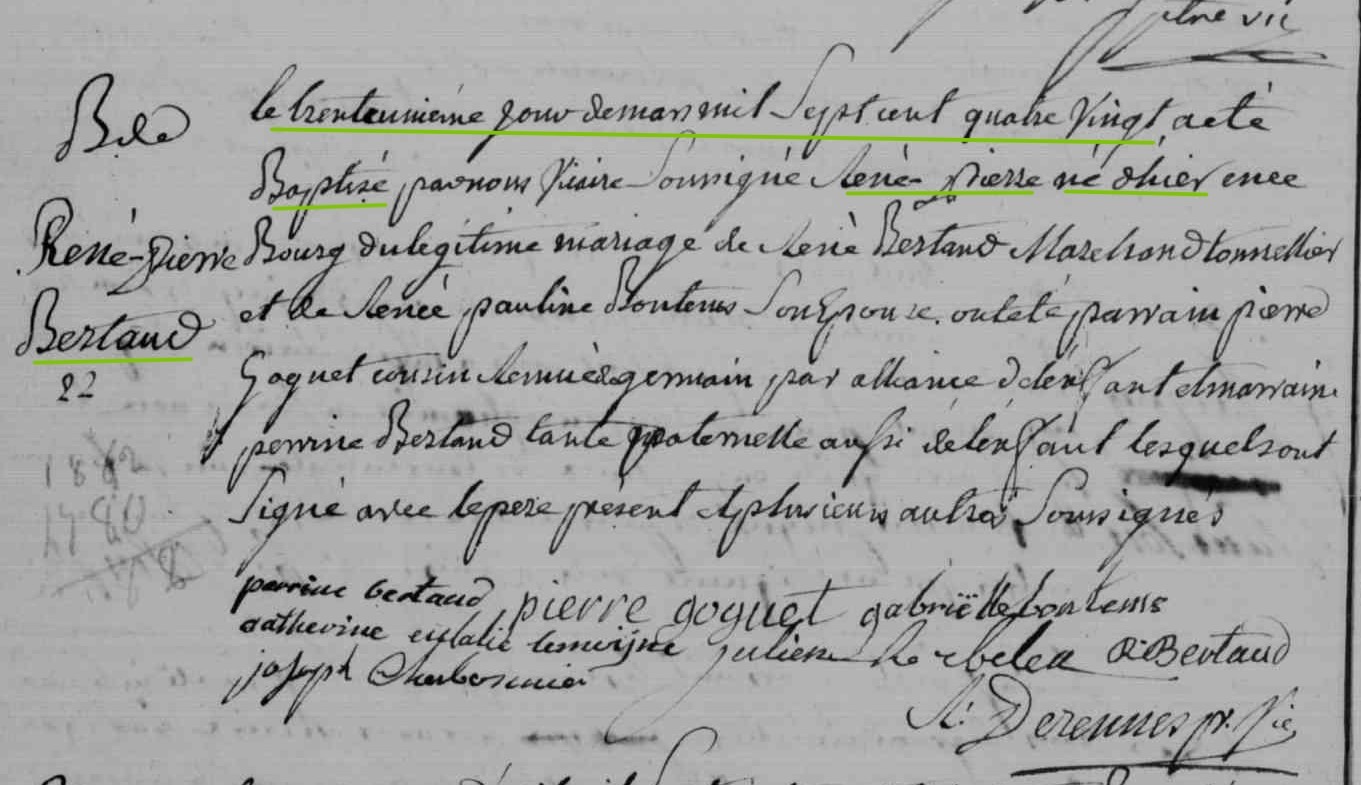 ptre vic
B de
René-Pierre
Bertaud
22
1882
1780
le trenteunième jour de mars mil Sept cent quatre Vingt a eté
Baptisé par nous Vicaire Soussigné René-Pierre né d'hier en ce
Bourg du legitime mariage de René Bertaud Marchand tonnellier
et de Renée pauline Bontems Son Epouse. ont eté parrain pierre
Goguet cousin germain par alliance de l'enfant et marraine
perrine Bertaud tante paternelle aussi de l'enfant lesquels ont
Signé avec le pere présent et plusieurs autres Soussignés
perrine bertaud pierre goguet gabriëlle bontems
catherine eulalie lemoijne julien R Bertaud
joseph Charbonnier
R. Derennes pr. Vic